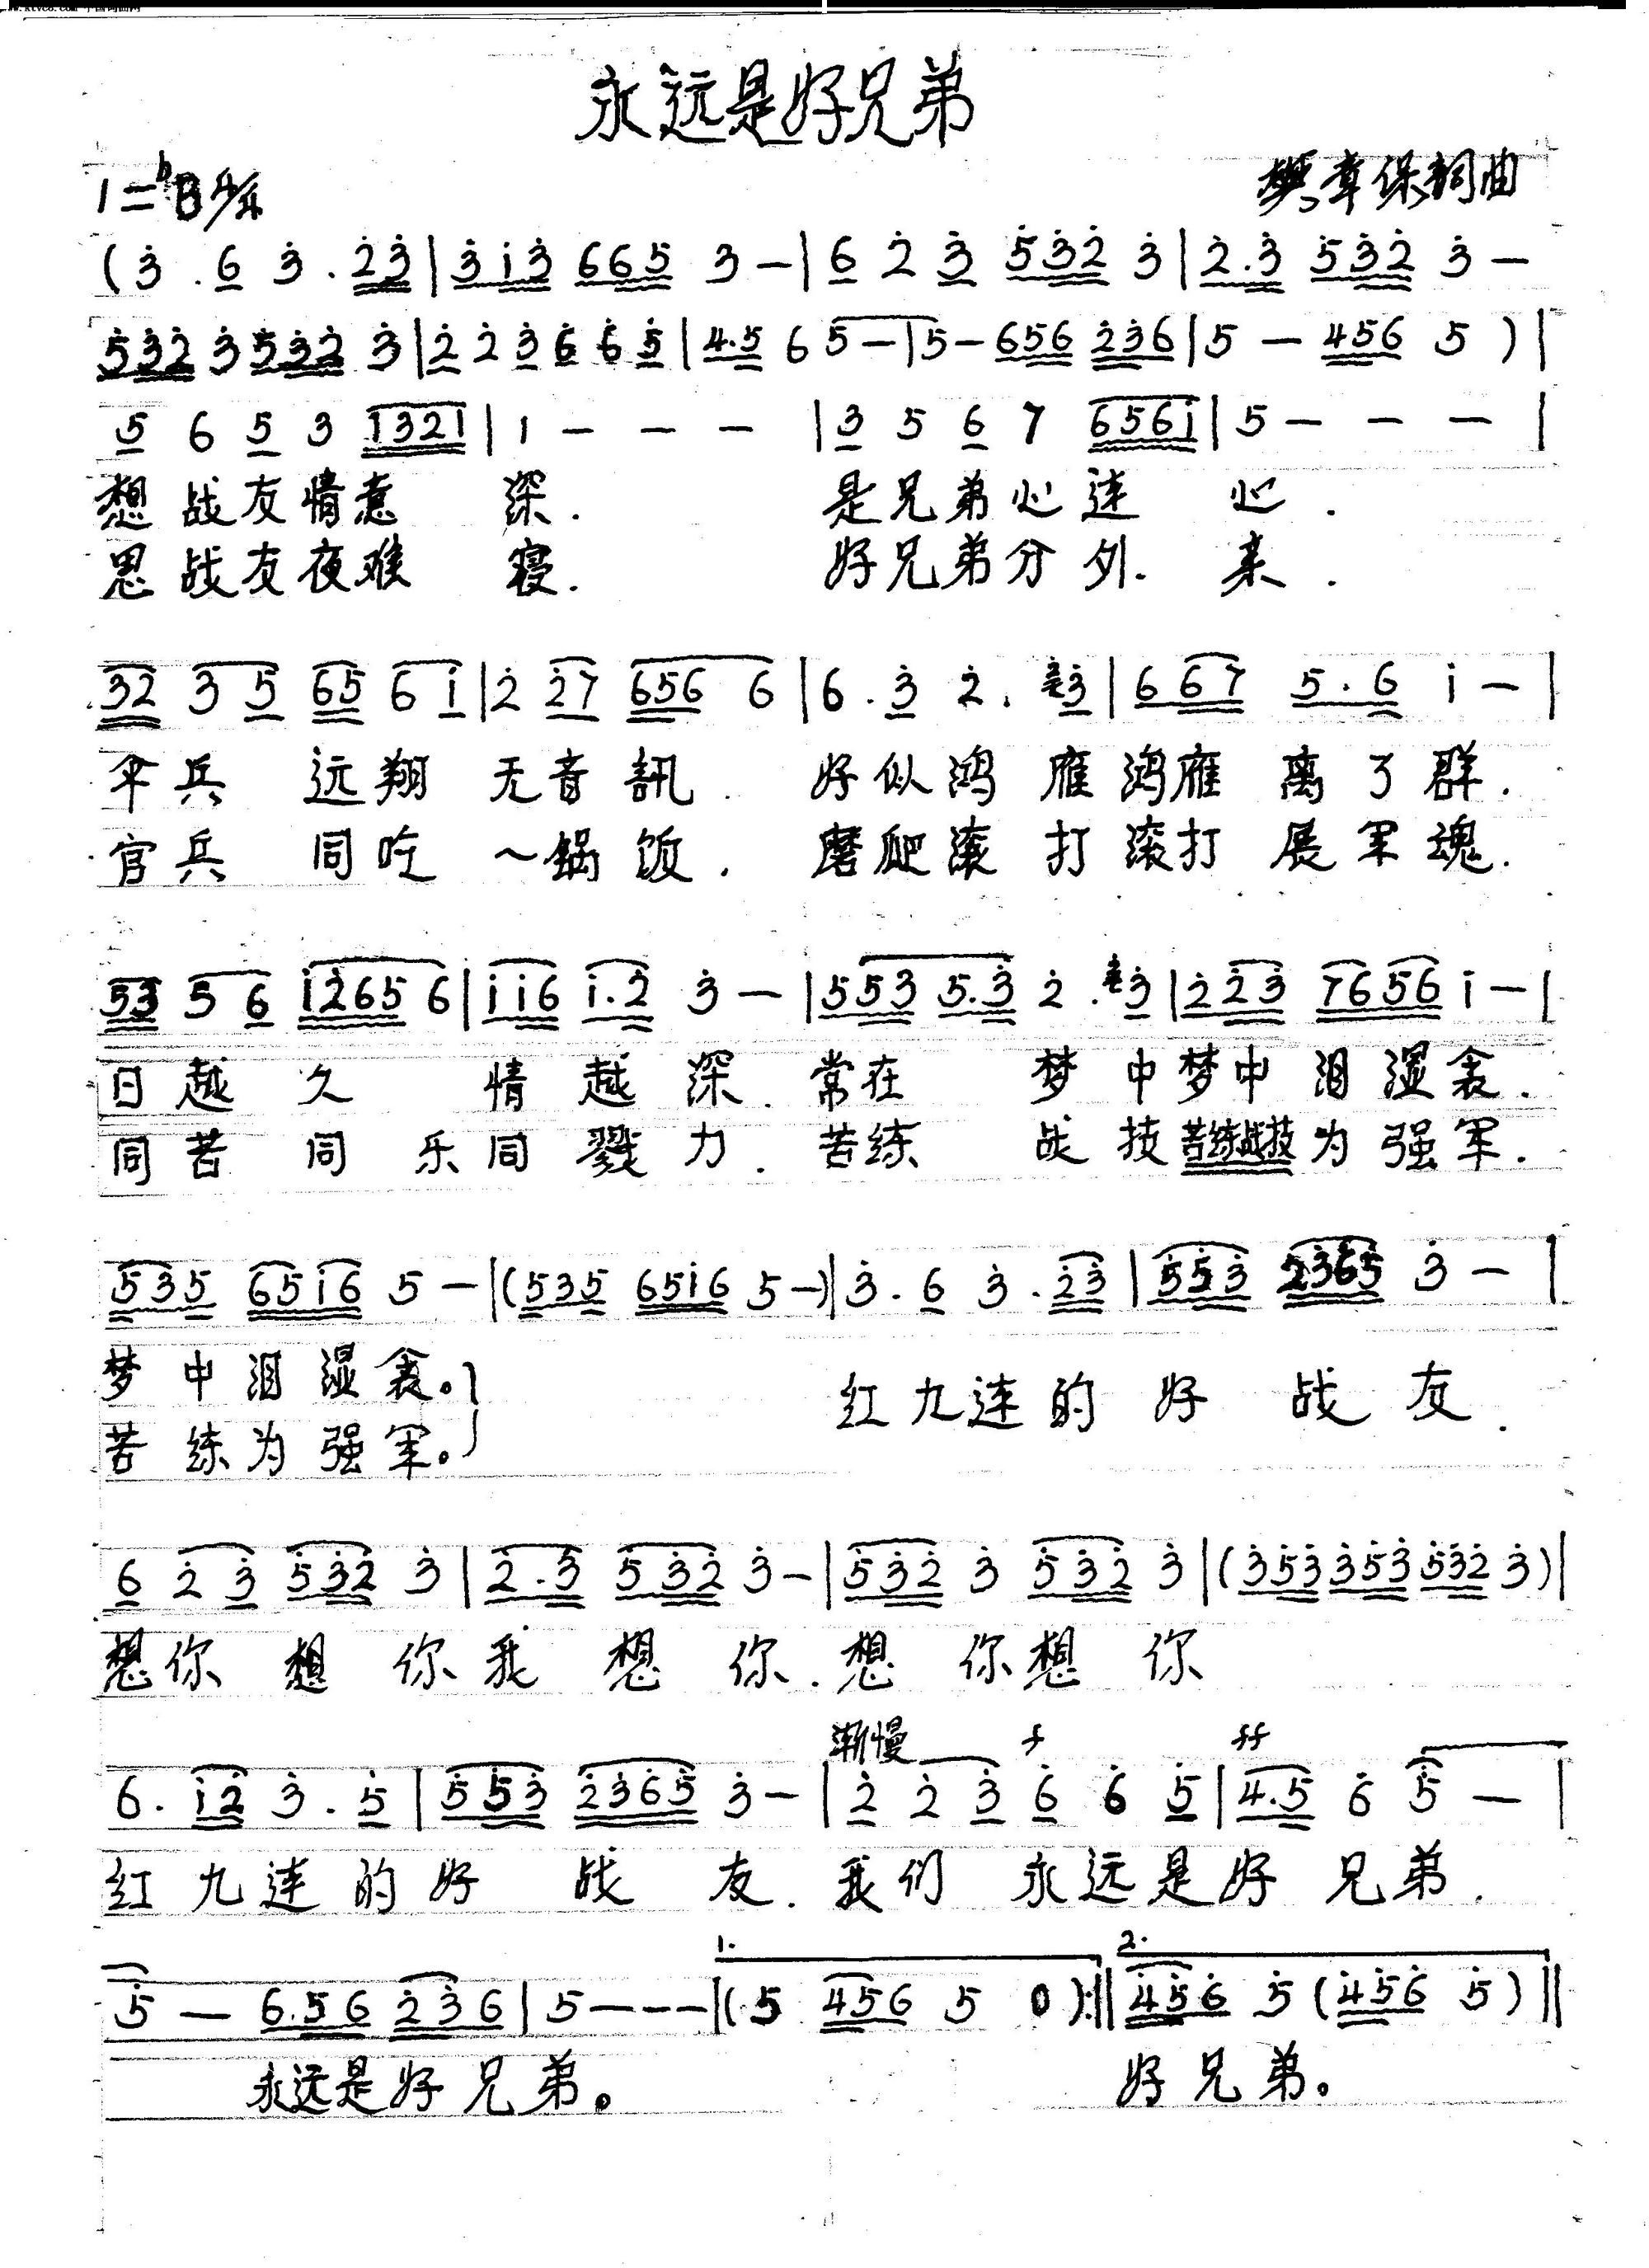 永远是好兄弟
1=ᵇB 4/4
樊章保詞曲
(3̇ . 6 3̇ . 2̇3̇ | 3̇1̇3̇ 665 3 — | 6 2̇ 3̇ 5̇3̇2̇ 3̇ | 2̇.3̇ 5̇3̇2̇ 3̇ —
5̇3̇2̇ 3̇ 5̇3̇2̇ 3̇ | 2̇ 2̇ 3̇ 6̇ 6̇ 5̇ | 4.5 6 5 — | 5 — 656 2̇3̇6 | 5 — 456 5 ) |
5 6 5 3 1321 | 1 — — — | 3 5 6 7 6561̇ | 5 — — — |
想战友情意 深. 是兄弟心连 心.
思战友夜难 寝. 好兄弟分外. 亲.
32 3 5 65 6 1̇ | 2̇ 2̇7 656 6 | 6 . 3̇ 2̇ . 3̇ | 6 67 5 . 6 1̇ — |
伞兵 远翔 无音訊. 好似鸿 雁鸿雁 离了群.
官兵 同吃 一锅饭. 磨爬滚 打滚打 展军魂.
53 5 6 1̇2̇65 6 | 1̇1̇6 1̇.2̇ 3̇ — | 553 5.3̇ 2̇ . 3̇ | 2̇2̇3̇ 7656 1̇ — |
日越 久 情越深. 常在 梦 中梦中 泪湿衾.
同苦 同 乐同戮力. 苦练 战 技苦练战技为强军.
535 651̇6 5 — | (535 651̇6 5 —) | 3̇ . 6 3̇ . 2̇3̇ | 5̇5̇3̇ 2̇3̇6̇5̇ 3̇ — |
梦中泪湿衾。 红九连的 好 战 友.
苦练为强军。
6 2̇ 3̇ 5̇3̇2̇ 3̇ | 2̇ . 3̇ 5̇3̇2̇ 3̇ — | 5̇3̇2̇ 3̇ 5̇3̇2̇ 3̇ | (3̇5̇3̇ 3̇5̇3̇ 5̇3̇2̇ 3̇) |
想你 想 你我 想 你. 想 你想 你
渐慢 f ff
6 . 1̇2̇ 3̇ . 5̇ | 5̇5̇3̇ 2̇3̇6̇5̇ 3̇ — | 2̇ 2̇ 3̇ 6̇ 6̇ 5̇ | 4.5 6̇ 5̇ — |
红九连的好 战 友. 我们 永远是好 兄弟.
1. 2.
5̇ — 6.56 2̇3̇6 | 5 — — — | (5 456 5 0) :|| 4̇5̇6̇ 5̇ (4̇5̇6̇ 5̇) ||
永远是好兄弟。 好兄弟。